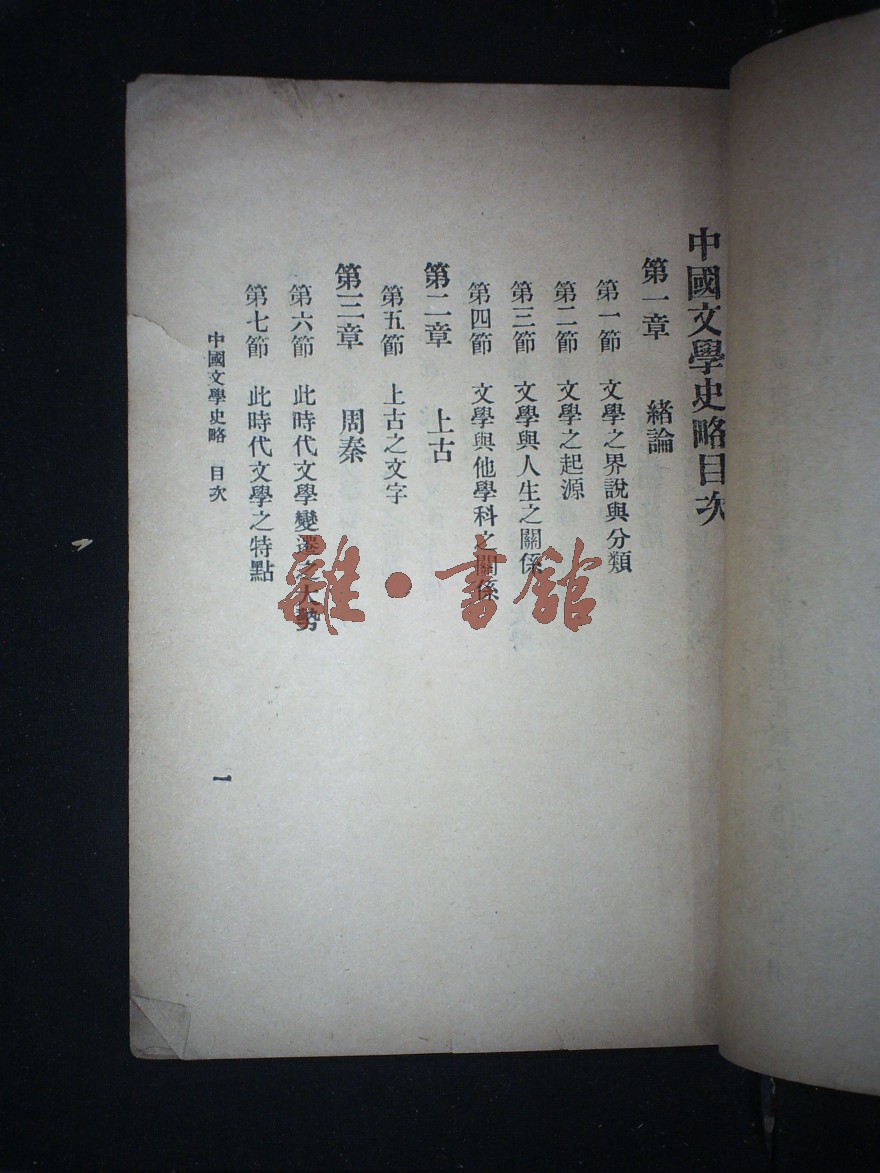 中國文學史略目次
第一章 緒論
第一節 文學之界說與分類
第二節 文學之起源
第三節 文學與人生之關係
第四節 文學與他學科之關係
第二章 上古
第五節 上古之文字
第三章 周秦
第六節 此時代文學變遷之大勢
第七節 此時代文學之特點
中國文學史略 目次
一
雜·書館